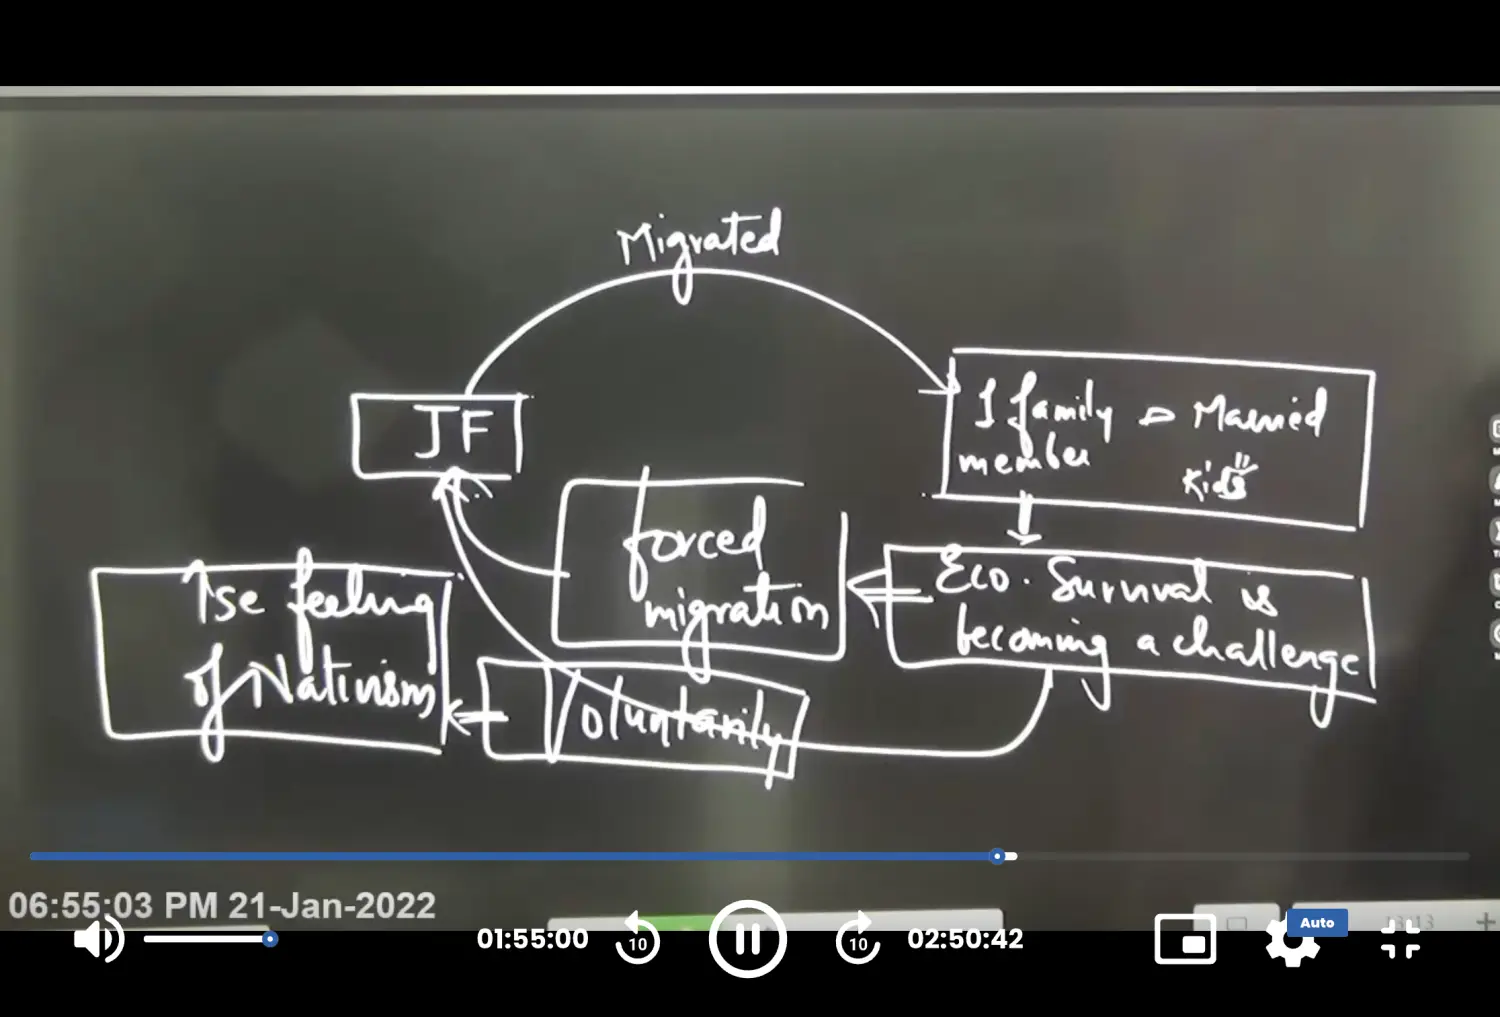 Migrated
JF
1 family → Married
member Kids
forced
migration
Eco. Survival is
becoming a challenge
↑se feeling
of Nativism
Voluntarily
06:55:03 PM 21-Jan-2022
01:55:00
10
10
02:50:42
Auto